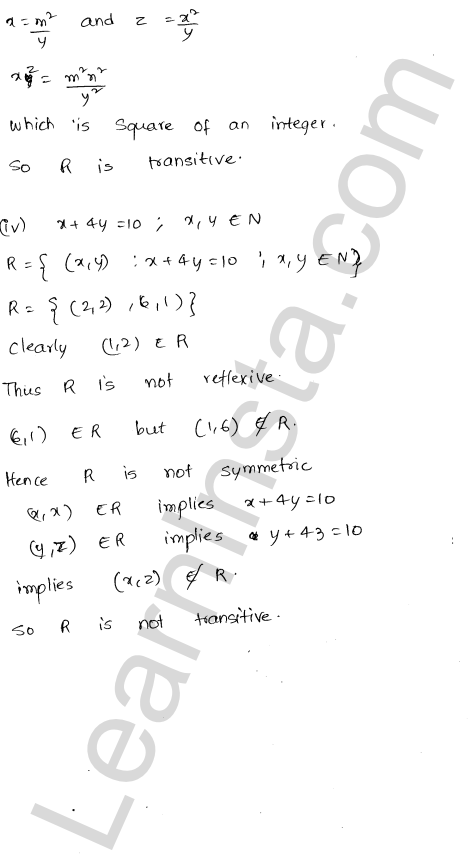 x = m²/y and z = x²/y
xz = m²n²/y²
which is square of an integer.
So R is transitive.
(iv) x + 4y = 10 ; x, y ∈ N
R = { (x,y) : x + 4y = 10 ; x, y ∈ N }
R = { (2,2) , (6,1) }
clearly (1,2) ∈ R
Thus R is not reflexive.
(6,1) ∈ R but (1,6) ∉ R.
Hence R is not symmetric
(x,x) ∈ R implies x + 4y = 10
(y,z) ∈ R implies y + 43 = 10
implies (x,z) ∉ R.
So R is not transitive.
Learninsta.com